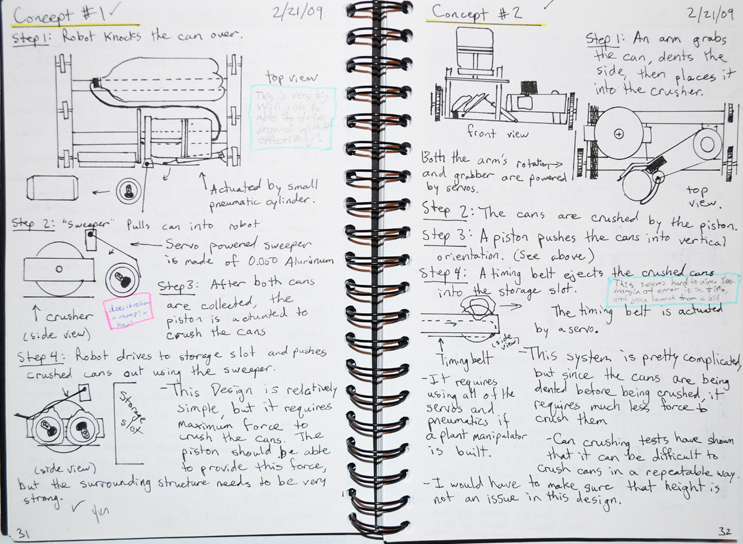 Concept #1 ✓ 2/21/09
Step 1: Robot Knocks the can over.
top view
Actuated by small
pneumatic cylinder.
Step 2: "Sweeper" Pulls can into robot
Servo powered sweeper
is made of 0.050 Aluminum
Step3: After both cans
are collected, the
piston is actuated to
crush the cans
crusher
(side view)
Step 4: Robot drives to storage slot and pushes
crushed cans out using the sweeper.
Storage
slot
(side view)
-This Design is relatively
simple, but it requires
maximum force to
crush the cans. The
piston should be able
to provide this force,
but the surrounding structure needs to be very
strong. ✓
31
Concept #2 ✓ 2/21/09
Step 1: An arm grabs
the can, dents the
side, then places it
into the crusher.
front view
Both the arm's rotation
and grabber are powered
by servos.
top
view.
Step 2: The cans are crushed by the piston.
Step 3: A piston pushes the cans into vertical
orientation. (See above)
Step 4: A timing belt ejects the crushed cans
into the storage slot.
The timing belt is actuated
by a servo.
(side view)
Timing belt
-It requires
using all of the
servos and
pneumatics if
a plant manipulator
is built.
-This system is pretty complicated,
but since the cans are being
dented before being crushed, it
requires much less force to
crush them
-Can crushing tests have shown
that it can be difficult to
crush cans in a repeatable way.
-I would have to make sure that height is
not an issue in this design.
32